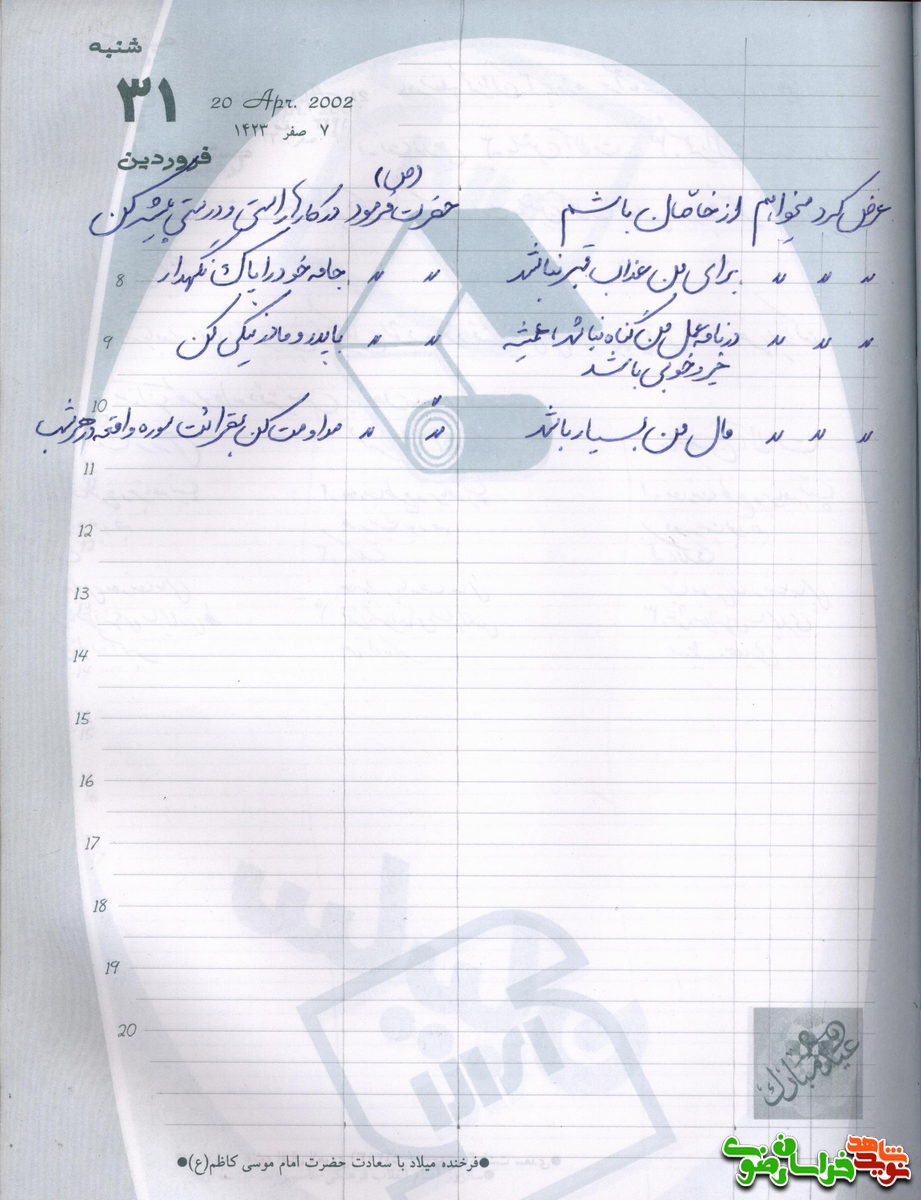 شنبه
۳۱
20 Apr. 2002
۷ صفر ۱۴۲۳
فروردین
عرض کرد میخواهم از خاصّان باشم حضرت (ص) فرمود در کارها راستی و درستی پیشه کن
〃 〃 〃 برای من عذاب قبر نباشد 〃 〃 جامه خود را پاک نگهدار
〃 〃 〃 در نامه عمل من گناه نباشد، همیشه 〃 〃 با پدر و مادر نیکی کن
خیر و خوبی باشد
〃 〃 〃 مال من بسیار باشد 〃 〃 مداومت کن بقرائت سوره واقعه در هر شب
8
9
10
11
12
13
14
15
16
17
18
19
20
عید مبارک
●فرخنده میلاد با سعادت حضرت امام موسی کاظم(ع)●
نوید شاهد خراسان رضوی